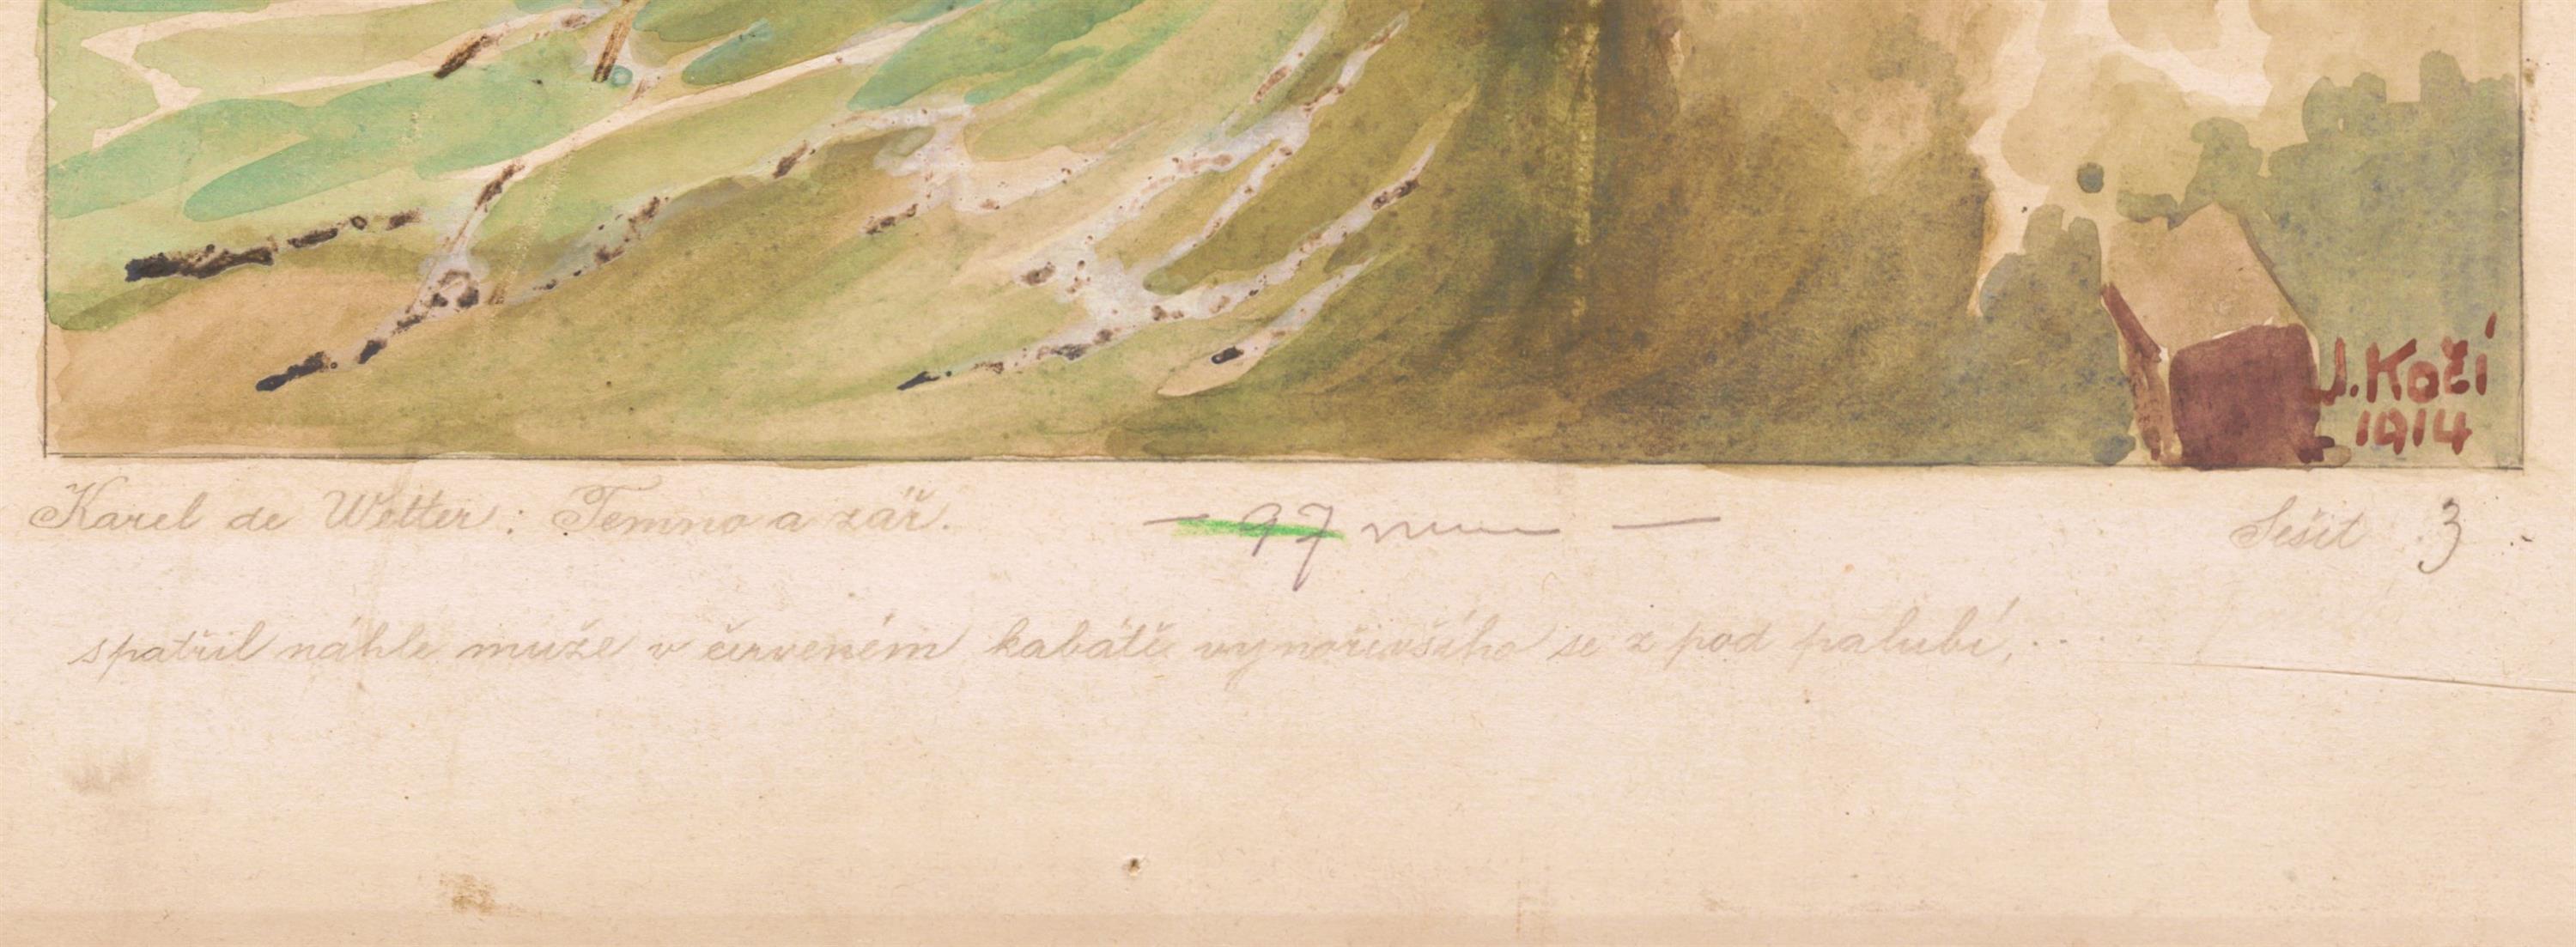 J. Koží
1914
Karel de Wetter: Temno a zář.
— 97 mm —
Sešit 3
spatřil náhle muže v červeném kabátě vynořivšího se z pod palubí,..